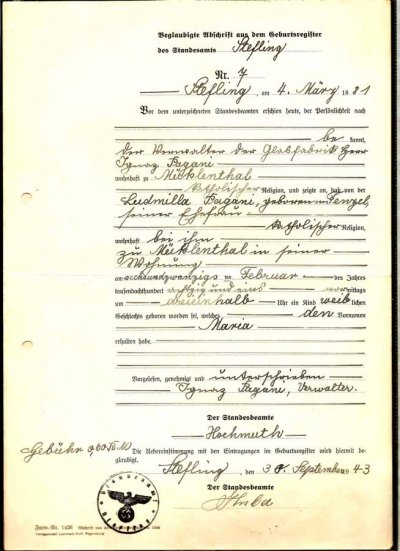 Beglaubigte Abschrift aus dem Geburtsregister
des Standesamts Stefling
Nr. 7
Stefling, am 4. März 1881
Vor dem unterzeichneten Standesbeamten erschien heute, der Persönlichkeit nach
be kannt,
der Verwalter der Glasfabrik Herr
Ignaz Pagani
wohnhaft zu Mühlenthal
katholischer Religion, und zeigte an, daß von der
Ludmilla Pagani, geborenen Fenzel,
seiner Ehefrau
katholischer Religion,
wohnhaft bei ihm
zu Mühlenthal in seiner
Wohnung
am siebenundzwanzigs ten Februar des Jahres
tausendachthundert achtzig und eins vormittags
um dreieinhalb Uhr ein Kind weiblichen
Geschlechts geboren worden sei, welches den Vornamen
Maria
erhalten habe.
Vorgelesen, genehmigt und unterschrieben
Ignaz Pagani, Verwalter.
Der Standesbeamte
Hochmuth
Die Uebereinstimmung mit den Eintragungen im Geburtsregister wird hiermit be-
glaubigt.
Gebühr 0,60 RM
Stefling, den 30. September 1943
Der Standesbeamte
Form.-Nr. 1426